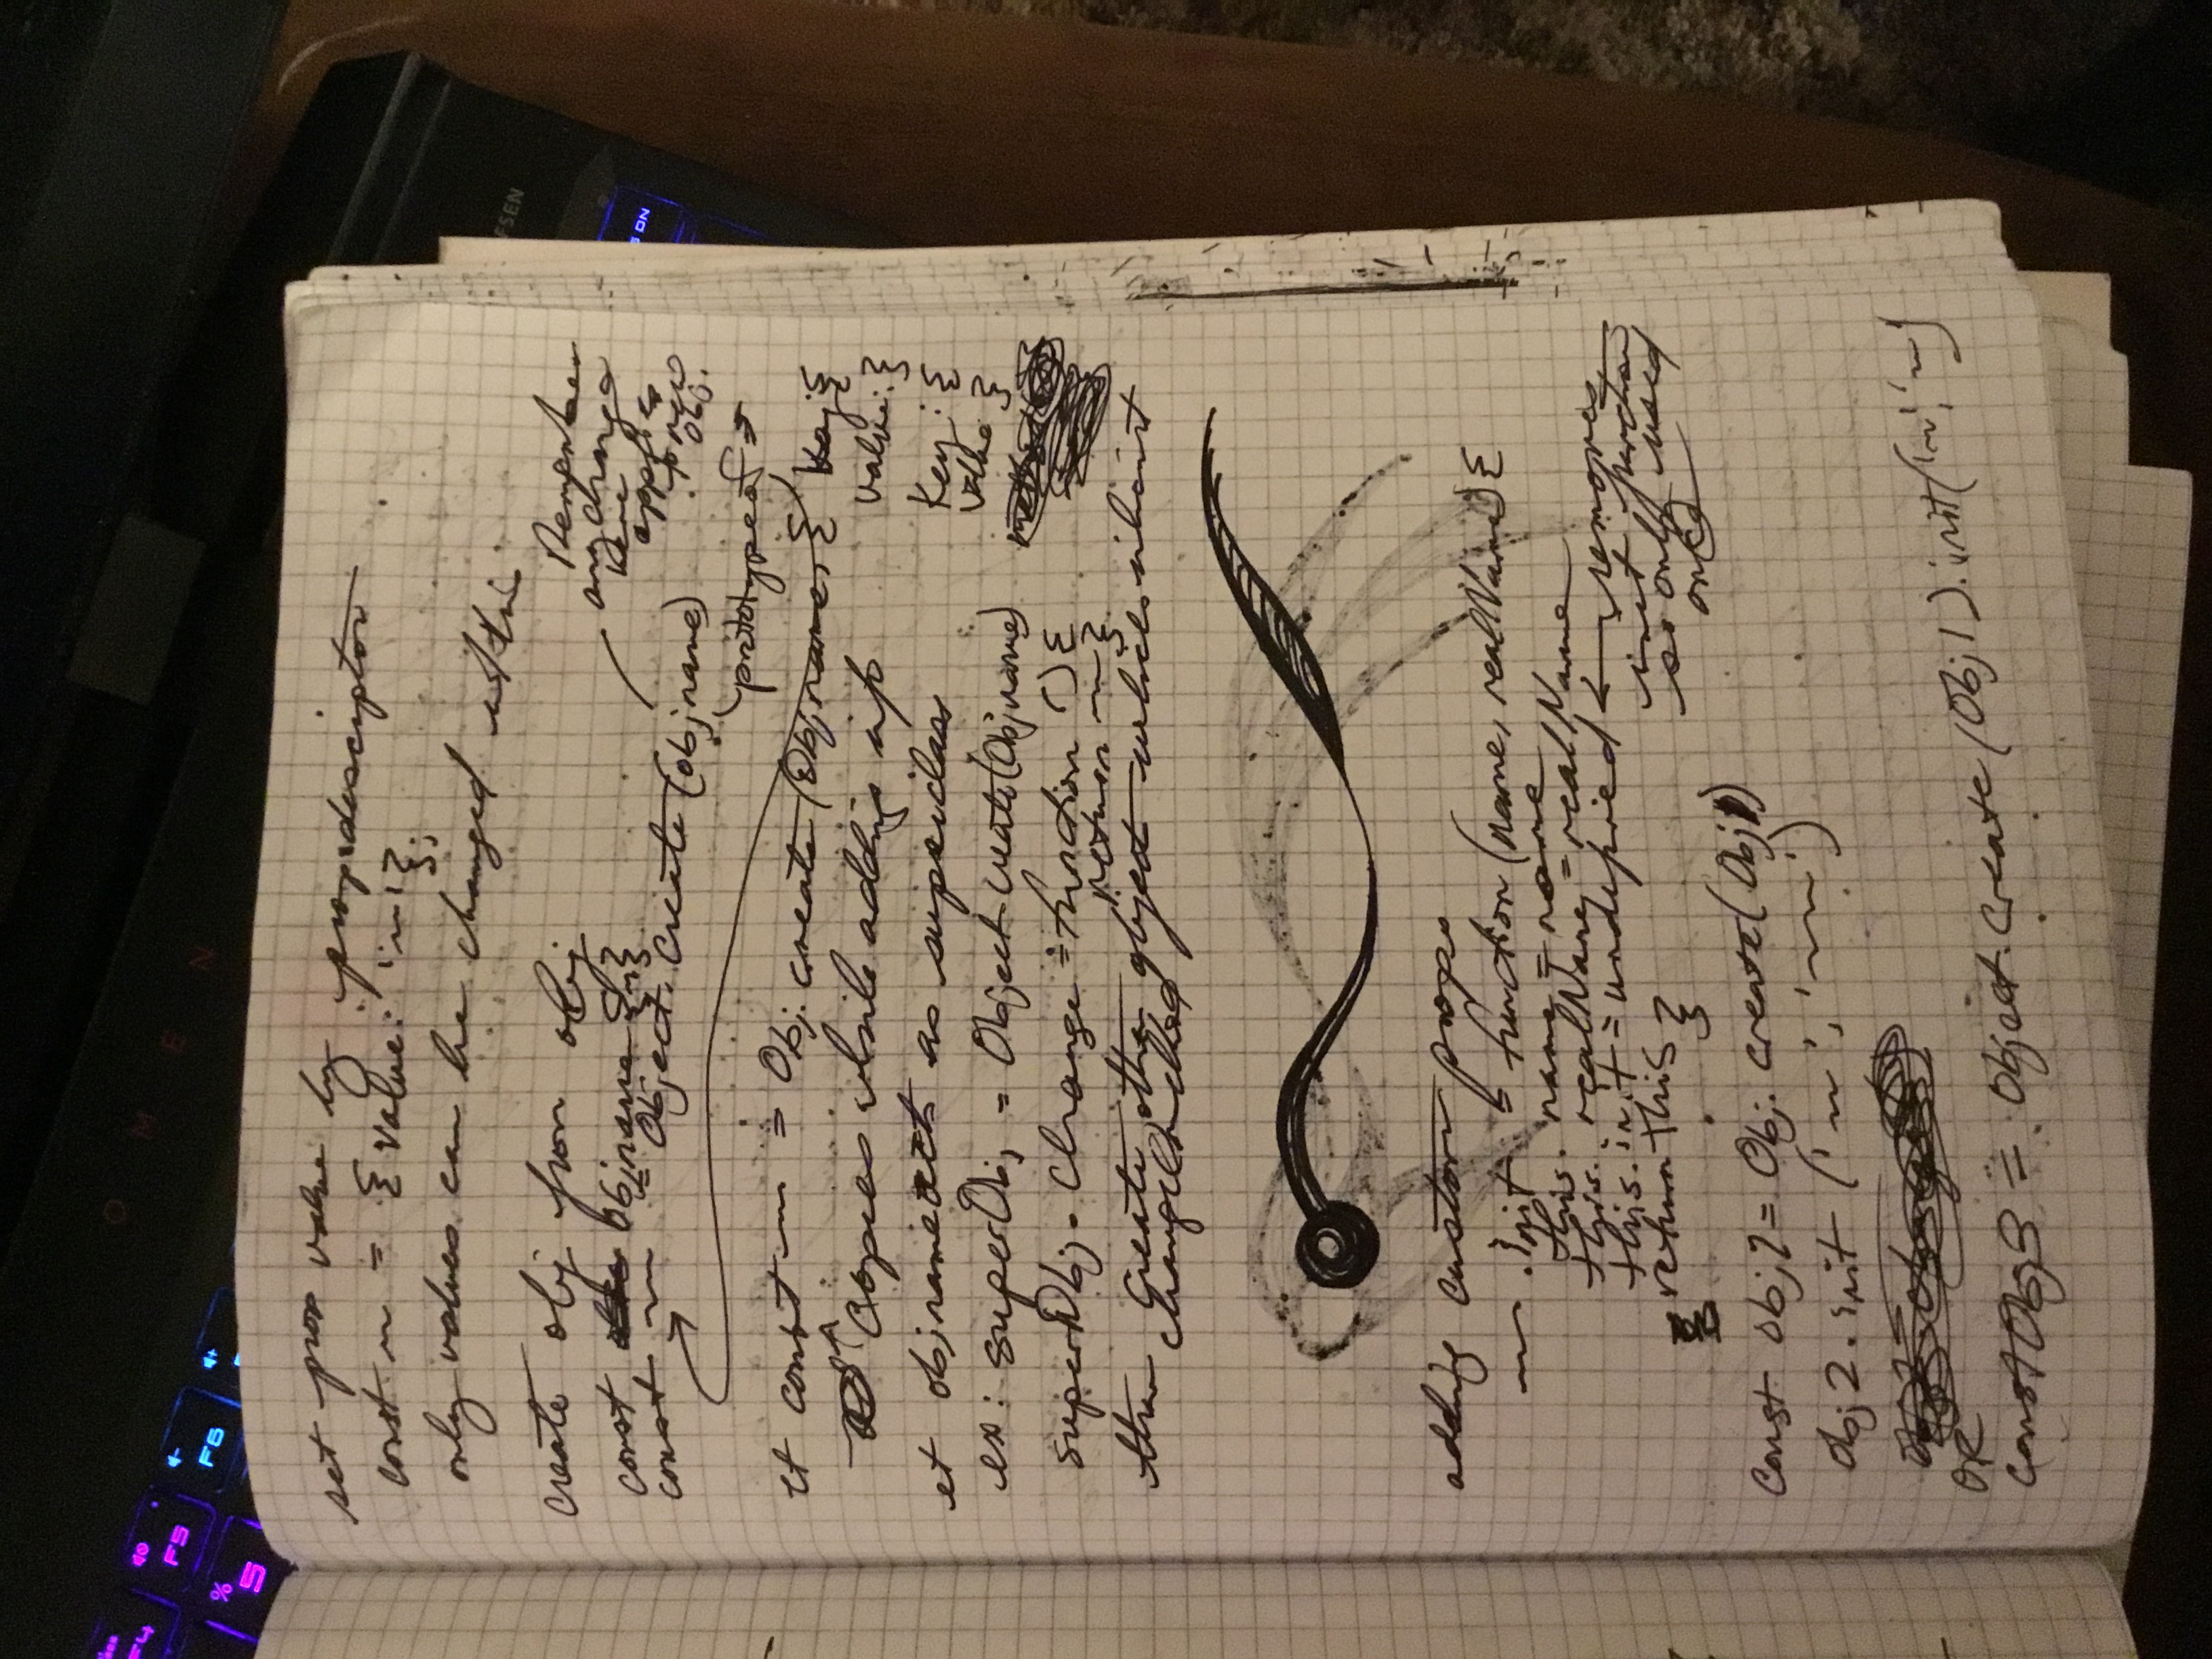 F4
F5
F6
%
5
OMEN
set prop value by prop. descriptor
const ~ = { value: '~'};
only values can be changed w/ this
create obj from obj
const Objname {~}
const ~ = Object.create(objname)
Remember
any change
here
applies
to new
obj.
prototype of
et const ~ = Obj.create(Objname, { Key: {
value: }
Key: {
value }
copies while adding info
et objname acts as superclass
ex: superObj = Object.create(Objname)
superObj.change = function () {
return ~ }
then create other object which inherit
change method
adding custom props
~ .init = function (name, realName) {
this.name = name
this.realName = realName
this.init = undefined ← removes
init function
so only used
once
return this }
const obj2 = Obj.create(Obj1)
Obj2.init ('~', '~')
OR
const Obj3 = Object.create(Obj1).init('~', '~')